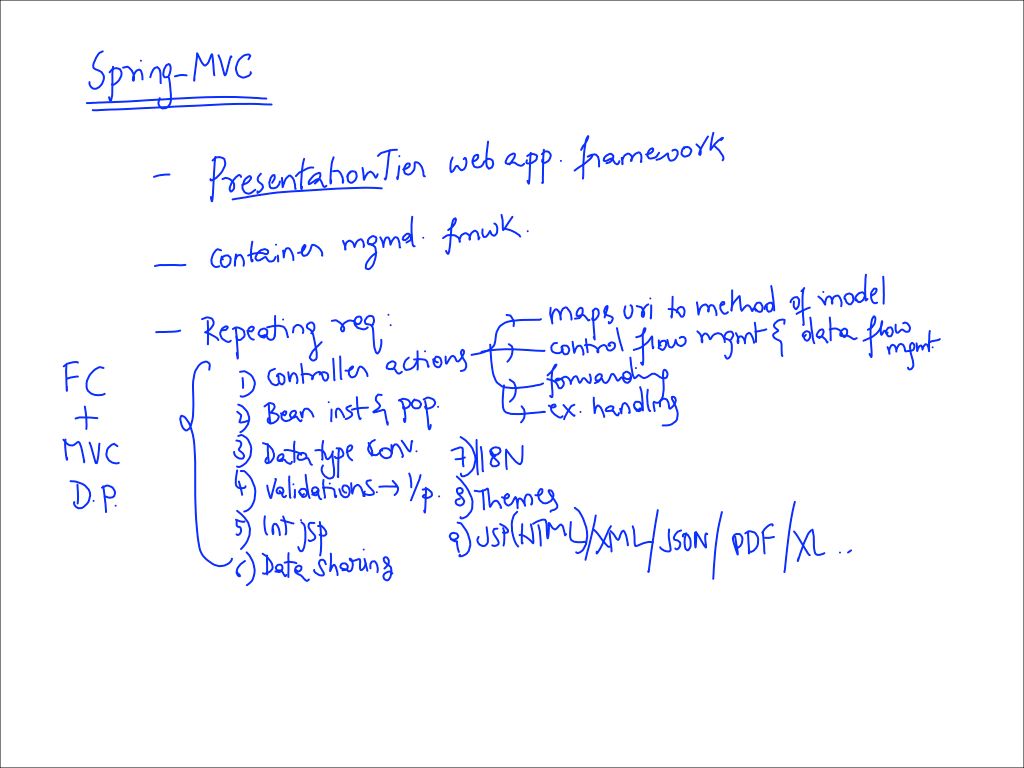 Spring-MVC
- Presentation Tier web app. framework
- container mgmd. fmwk.
- Repeating req:
FC
+
MVC
D.P.
1) controller actions
- maps uri to method of model
- control flow mgmt & data flow mgmt
- forwarding
- ex. handling
2) Bean inst & pop.
3) Data type conv.
4) Validations → i/p.
5) Int jsp
6) Data sharing
7) I18N
8) Themes
9) JSP(HTML)/XML/JSON/PDF/XL ..